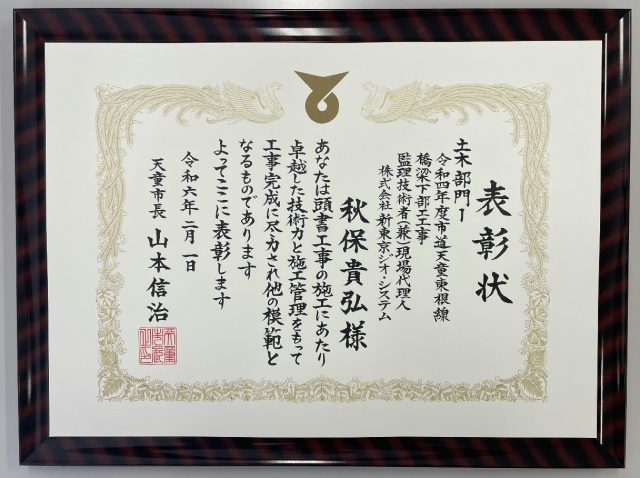 表彰状
土木部門1
令和四年度市道天童東根線
橋梁下部工工事
監理技術者(兼)現場代理人
株式会社新東京ジオ・システム
秋保貴弘様
あなたは頭書工事の施工にあたり
卓越した技術力と施工管理をもって
工事完成に尽力され他の模範と
なるものであります
よってここに表彰します
令和六年二月一日
天童市長 山本信治